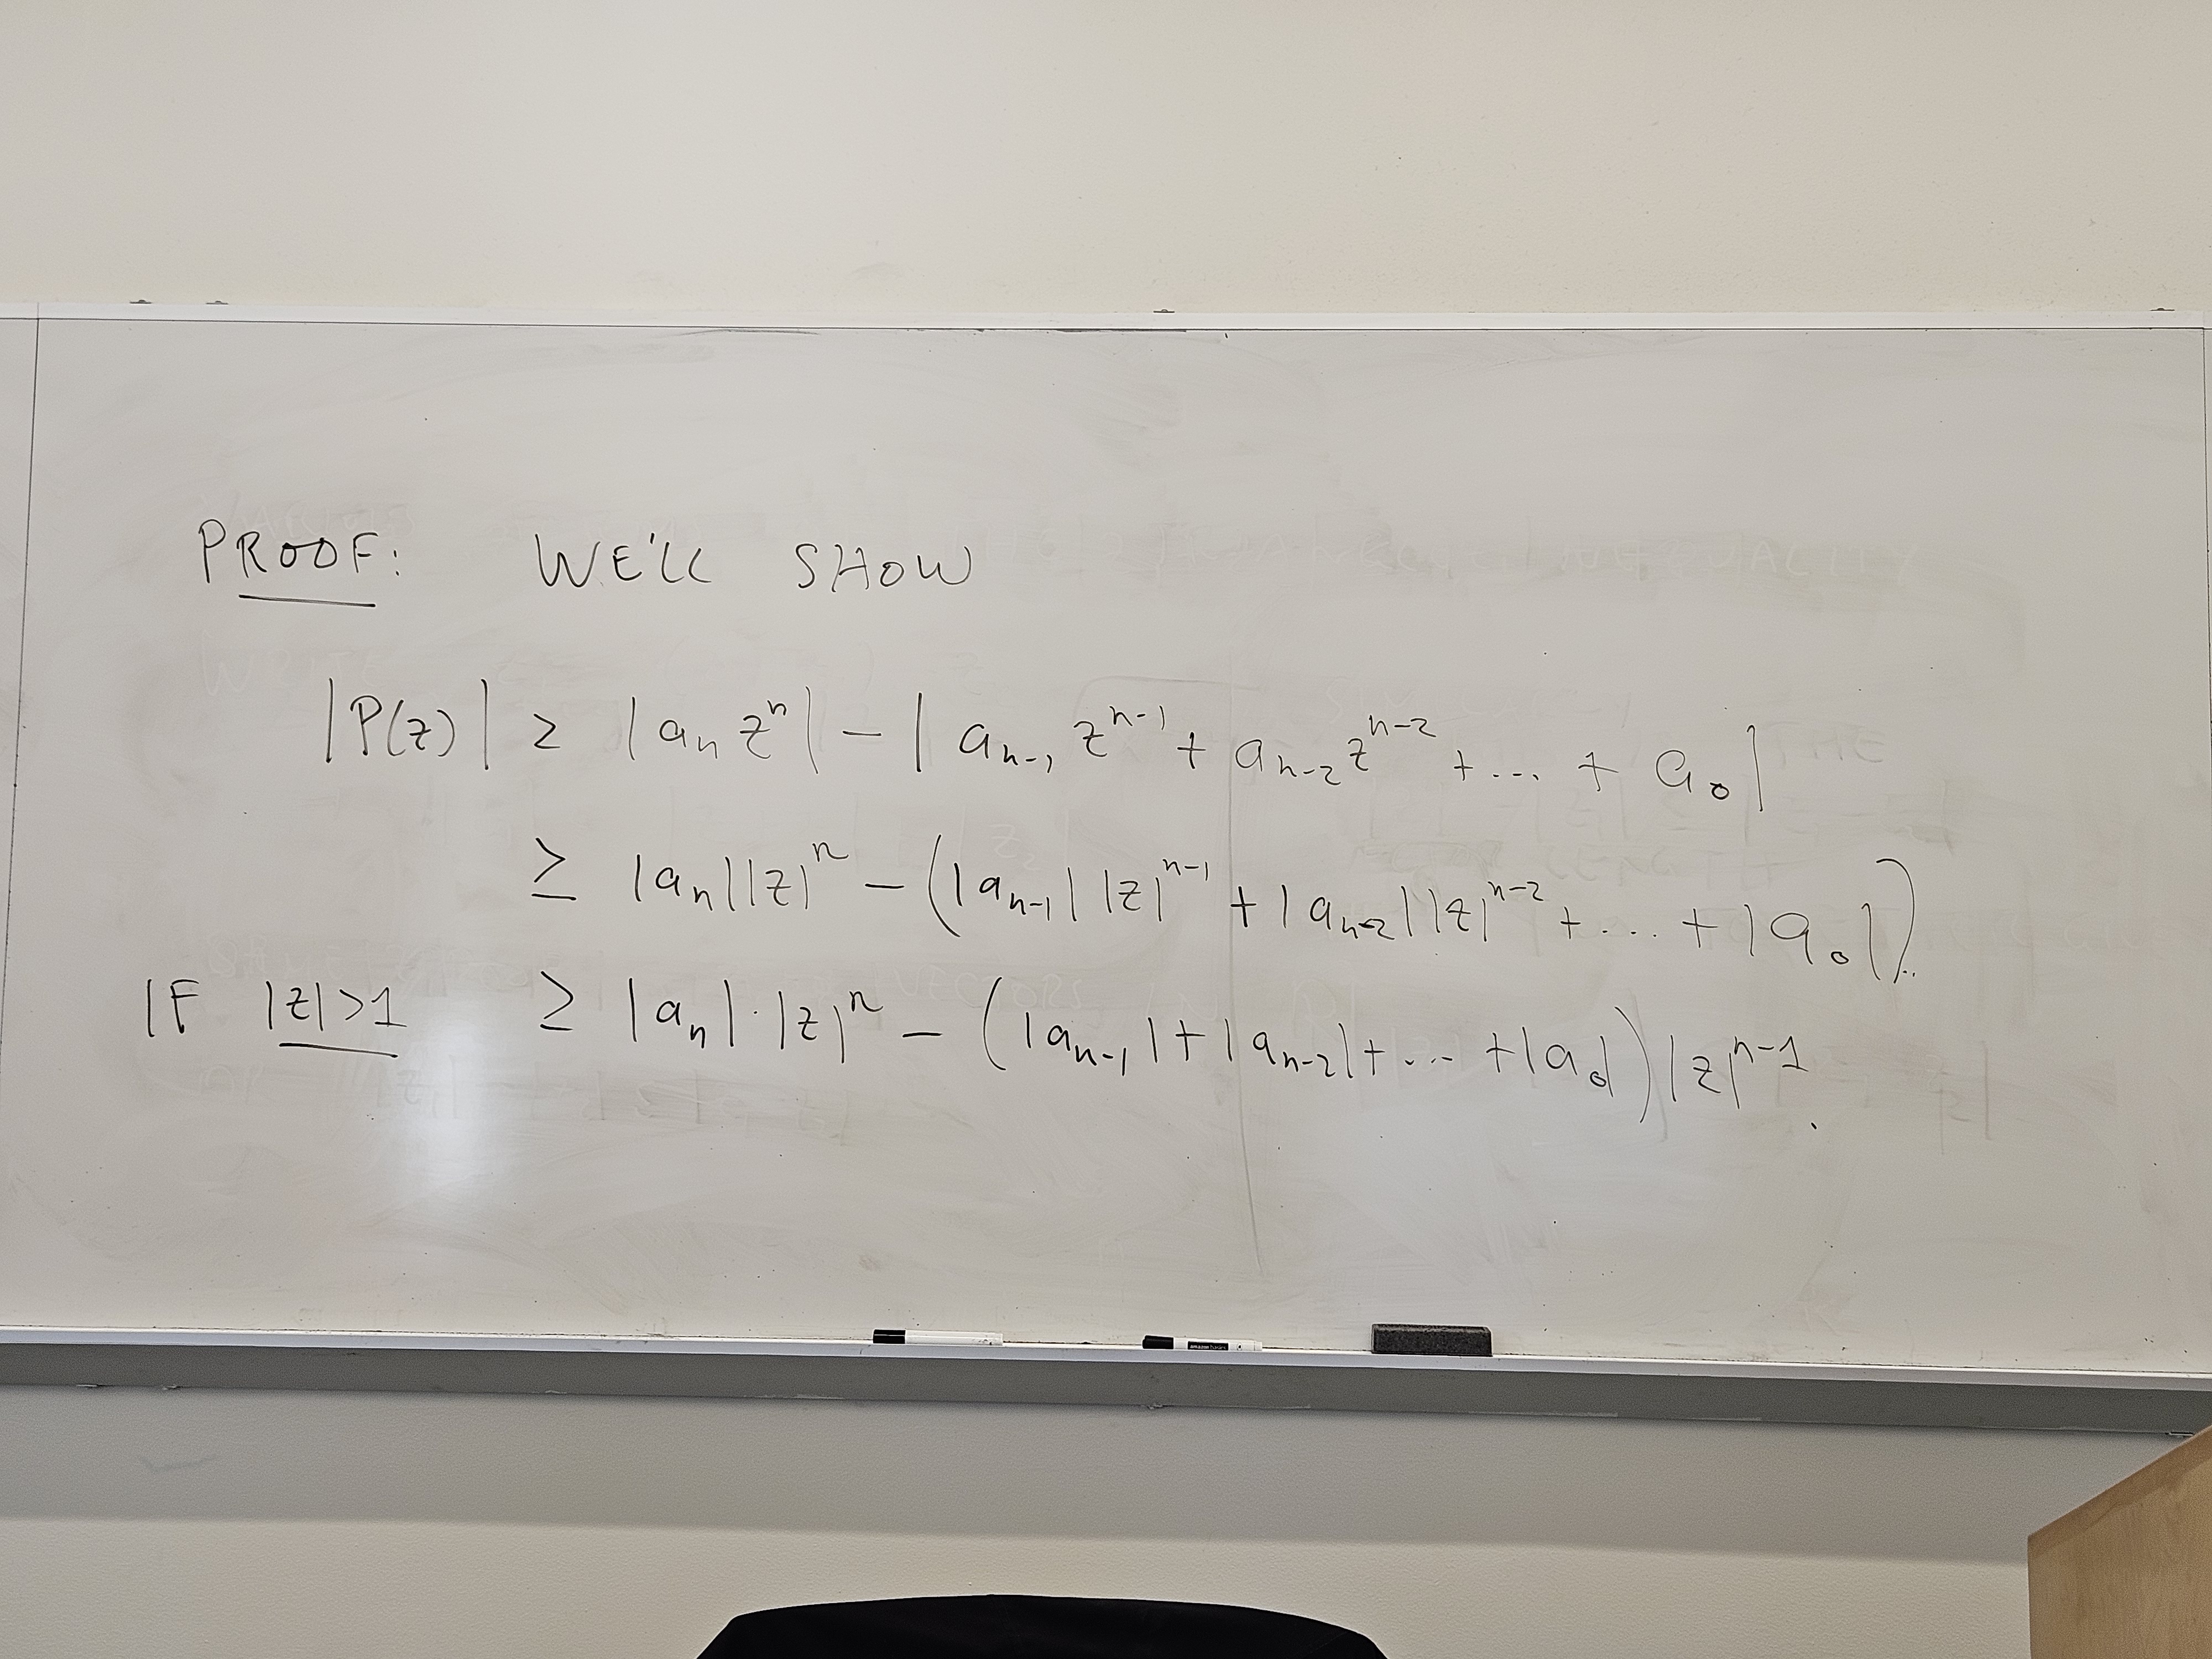 PROOF: WE'LL SHOW
|P(z)| ≥ |aₙ zⁿ| - |aₙ₋₁ zⁿ⁻¹ + aₙ₋₂ zⁿ⁻² + ... + a₀|
≥ |aₙ||z|ⁿ - (|aₙ₋₁| |z|ⁿ⁻¹ + |aₙ₋₂||z|ⁿ⁻² + ... + |a₀|).
IF |z|>1 ≥ |aₙ|·|z|ⁿ - (|aₙ₋₁|+|aₙ₋₂|+ ... +|a₀|)|z|ⁿ⁻¹.
amazon basics